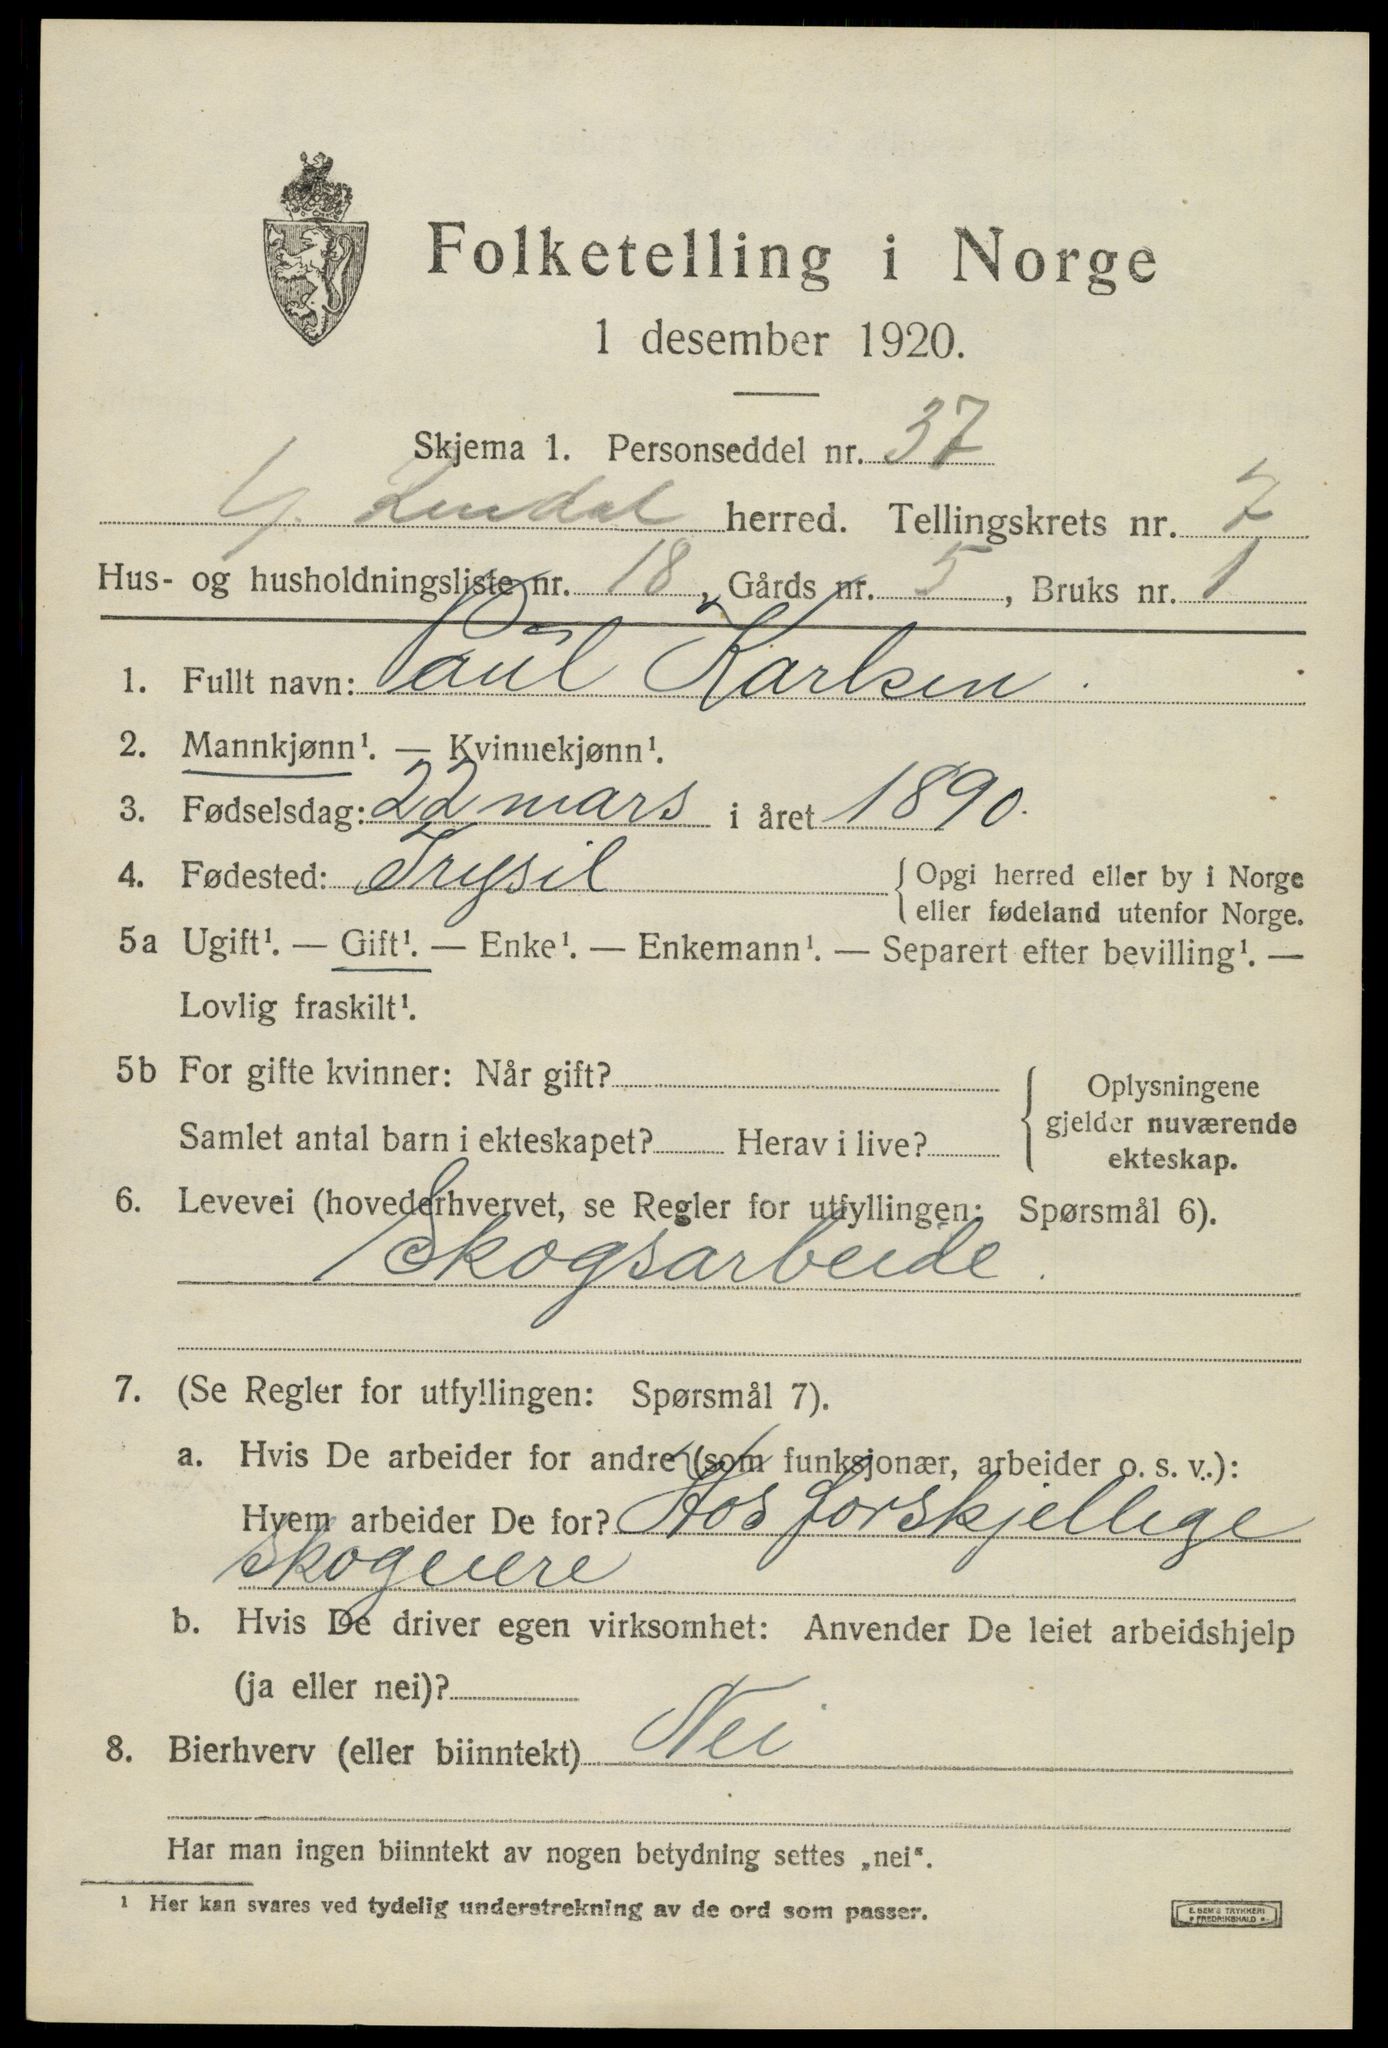 Folketelling i Norge
1 desember 1920.
Skjema 1. Personseddel nr. 37
Y. Rendal herred. Tellingskrets nr. 7
Hus- og husholdningsliste nr. 18, Gårds nr. 5, Bruks nr. 1
1. Fullt navn: Paul Karlsen.
2. Mannkjønn¹. — Kvinnekjønn¹.
3. Fødselsdag: 22 mars i året 1890.
4. Fødested: Trysil { Opgi herred eller by i Norge
eller fødeland utenfor Norge.
5a Ugift¹. — Gift¹. — Enke¹. — Enkemann¹. — Separert efter bevilling¹. —
Lovlig fraskilt¹.
5b For gifte kvinner: Når gift?
Samlet antal barn i ekteskapet? Herav i live?
{ Oplysningene
gjelder nuværende
ekteskap.
6. Levevei (hovederhvervet, se Regler for utfyllingen: Spørsmål 6).
Skogsarbeide.
7. (Se Regler for utfyllingen: Spørsmål 7).
a. Hvis De arbeider for andre (som funksjonær, arbeider o. s. v.):
Hvem arbeider De for? Hos forskjellige
skogeiere
b. Hvis De driver egen virksomhet: Anvender De leiet arbeidshjelp
(ja eller nei)?
8. Bierhverv (eller biinntekt) Nei
Har man ingen biinntekt av nogen betydning settes „nei".
¹ Her kan svares ved tydelig understrekning av de ord som passer.
E. SEM'S TRYKKERI
FREDRIKSHALD